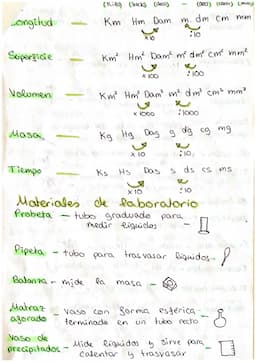 (Kilo) (hecto) (deca) - (deci) (centi) (mili)
Longitud — Km Hm Dam m dm cm mm
x10 :10
Superficie — Km² Hm² Dam² m² dm² cm² mm²
x100 :100
Volumen — Km³ Hm³ Dam³ m³ dm³ cm³ mm³
x1000 :1000
Masa — Kg Hg Dag g dg cg mg
x10 :10
Tiempo — Ks Hs Das s ds cs ms
x10 :10
Materiales de laboratorio
Probeta — tubo graduado para
medir líquidos
Pipeta — tubo para trasvasar líquidos
Balanza — mide la masa
Matraz — vaso con forma esférica
aforado terminado en un tubo recto
Vaso de — Mide líquidos y sirve para
precipitados calentar y trasvasar